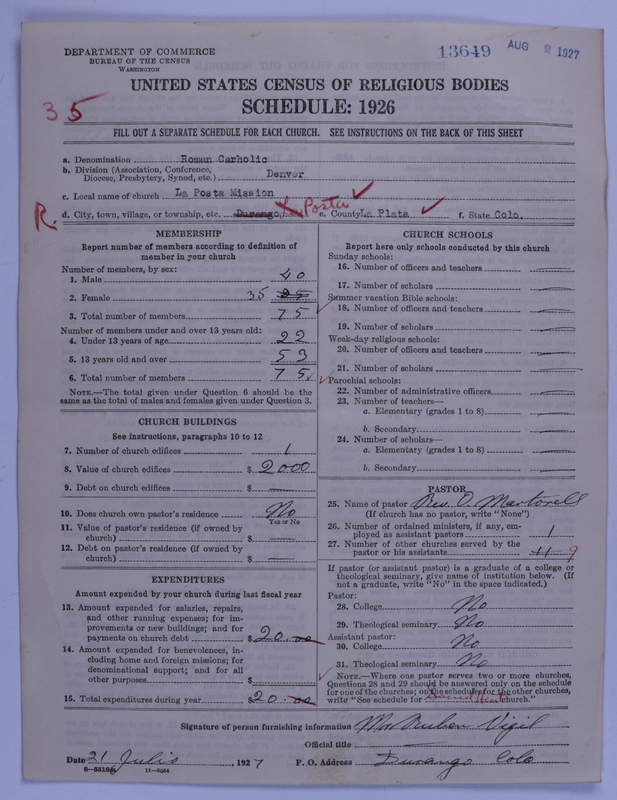 DEPARTMENT OF COMMERCE
BUREAU OF THE CENSUS
WASHINGTON
13649 AUG 2 1927
UNITED STATES CENSUS OF RELIGIOUS BODIES
SCHEDULE: 1926
35
FILL OUT A SEPARATE SCHEDULE FOR EACH CHURCH. SEE INSTRUCTIONS ON THE BACK OF THIS SHEET
a. Denomination Roman Carholic
b. Division (Association, Conference, Diocese, Presbytery, Synod, etc.) Denver
c. Local name of church La Posta Mission
R. d. City, town, village, or township, etc. Durango La Posta e. County La Plata f. State Colo.
MEMBERSHIP
Report number of members according to definition of
member in your church
Number of members, by sex:
1. Male 40
2. Female 35
3. Total number of members 75
Number of members under and over 13 years old:
4. Under 13 years of age 22
5. 13 years old and over 53
6. Total number of members 75
NOTE.—The total given under Question 6 should be the
same as the total of males and females given under Question 3.
CHURCH BUILDINGS
See instructions, paragraphs 10 to 12
7. Number of church edifices 1
8. Value of church edifices $ 2000
9. Debt on church edifices $
10. Does church own pastor's residence No
Yes or No
11. Value of pastor's residence (if owned by
church) $
12. Debt on pastor's residence (if owned by
church) $
EXPENDITURES
Amount expended by your church during last fiscal year
13. Amount expended for salaries, repairs,
and other running expenses; for im-
provements or new buildings; and for
payments on church debt $ 20.00
14. Amount expended for benevolences, in-
cluding home and foreign missions; for
denominational support; and for all
other purposes $
15. Total expenditures during year $ 20.00
CHURCH SCHOOLS
Report here only schools conducted by this church
Sunday schools:
16. Number of officers and teachers
17. Number of scholars
Summer vacation Bible schools:
18. Number of officers and teachers
19. Number of scholars
Week-day religious schools:
20. Number of officers and teachers
21. Number of scholars
Parochial schools:
22. Number of administrative officers
23. Number of teachers—
a. Elementary (grades 1 to 8)
b. Secondary
24. Number of scholars—
a. Elementary (grades 1 to 8)
b. Secondary
PASTOR
25. Name of pastor Rev. O. Martorell
(If church has no pastor, write "None")
26. Number of ordained ministers, if any, em-
ployed as assistant pastors 1
27. Number of other churches served by the
pastor or his assistants 11 9
If pastor (or assistant pastor) is a graduate of a college or
theological seminary, give name of institution below. (If
not a graduate, write "No" in the space indicated.)
Pastor:
28. College No
29. Theological seminary No
Assistant pastor:
30. College No
31. Theological seminary No
NOTE.—Where one pastor serves two or more churches,
Questions 28 and 29 should be answered only on the schedule
for one of the churches; on the schedules for the other churches,
write "See schedule for Sacred Heart church."
Signature of person furnishing information Mr Reuben Vigil
Official title
Date 21 Julio, 1927 P. O. Address Durango Colo
8—5518 11—9054